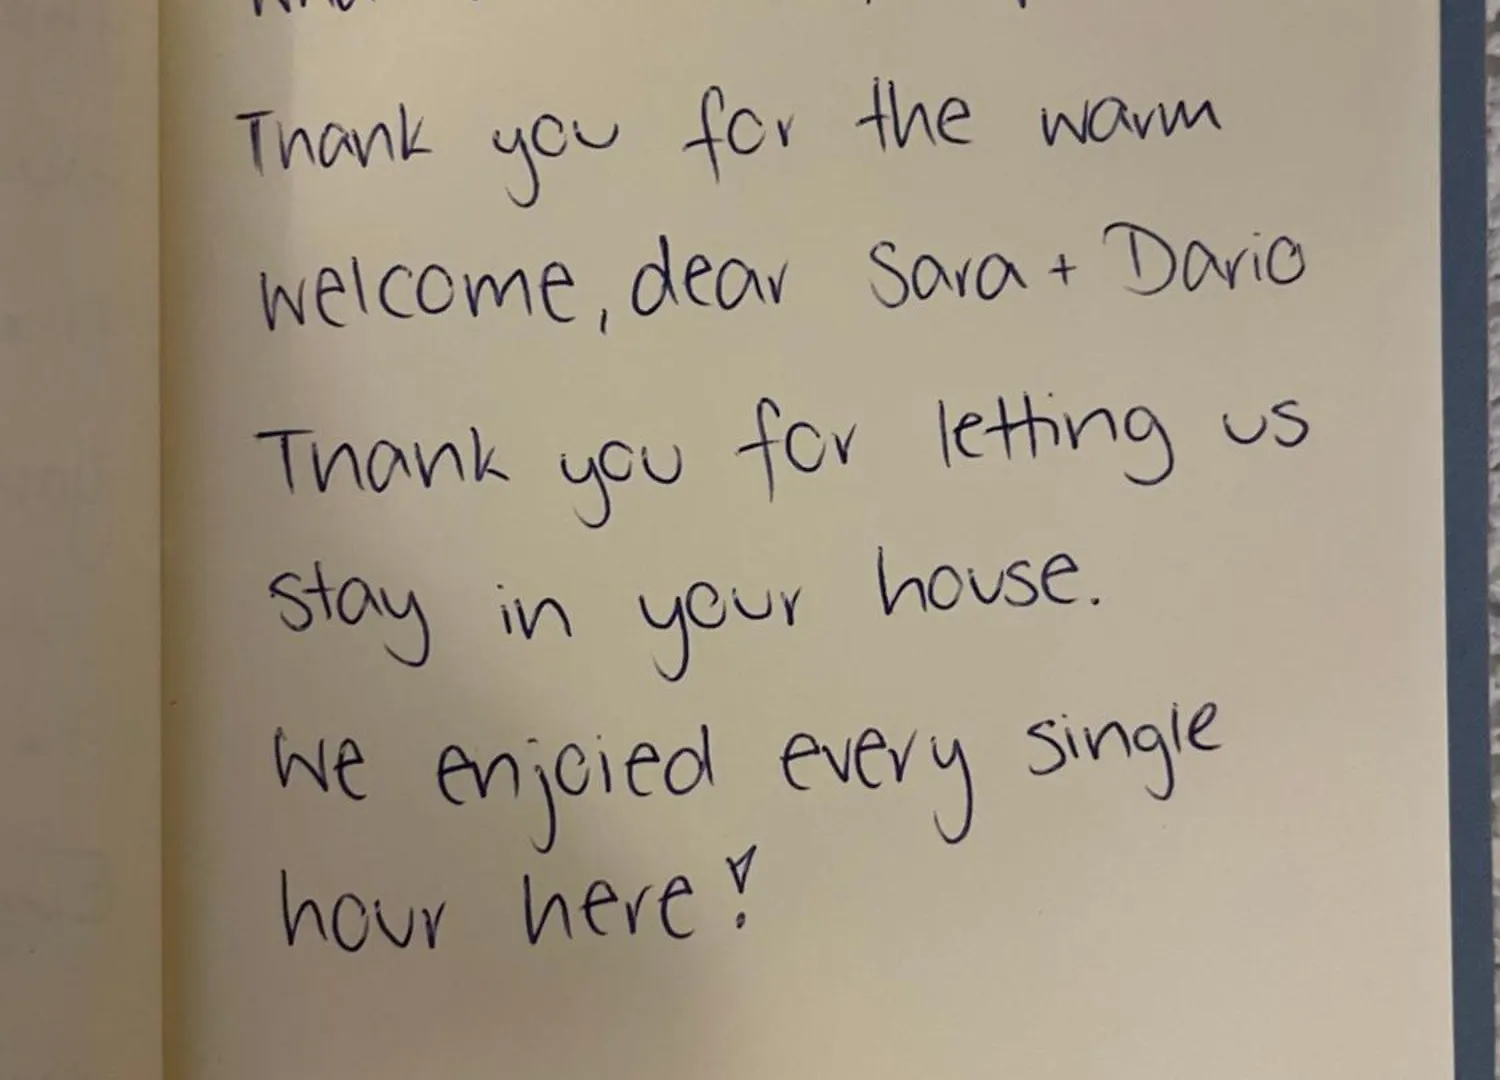 Thank you for the warm
welcome, dear Sara + Dario
Thank you for letting us
stay in your house.
We enjoied every single
hour here!